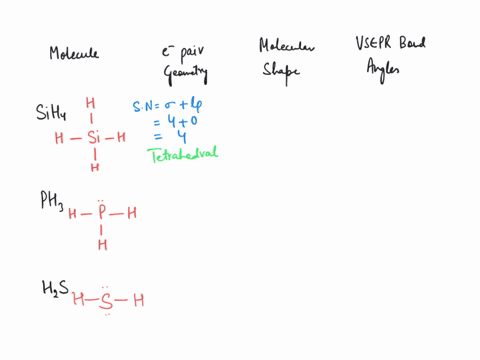 Molecule e⁻ pair Geometry Molecular Shape VSEPR Bond Angles
SiH4
H
H — Si — H
H
S.N = σ + lp
= 4 + 0
= 4
Tetrahedral
PH3
H — P — H
H
H2S
H — S — H